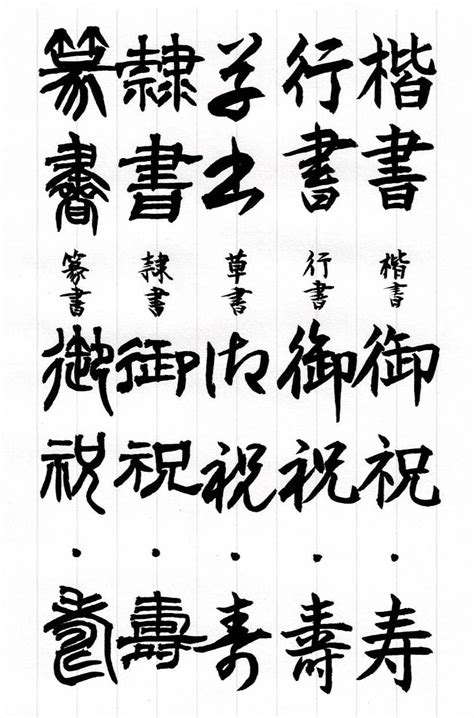 楷書 楷書 御祝・寿
行書 行書 御祝・壽
草書 草書 御祝・寿
隷書 隷書 御祝・壽
篆書 篆書 御祝・壽